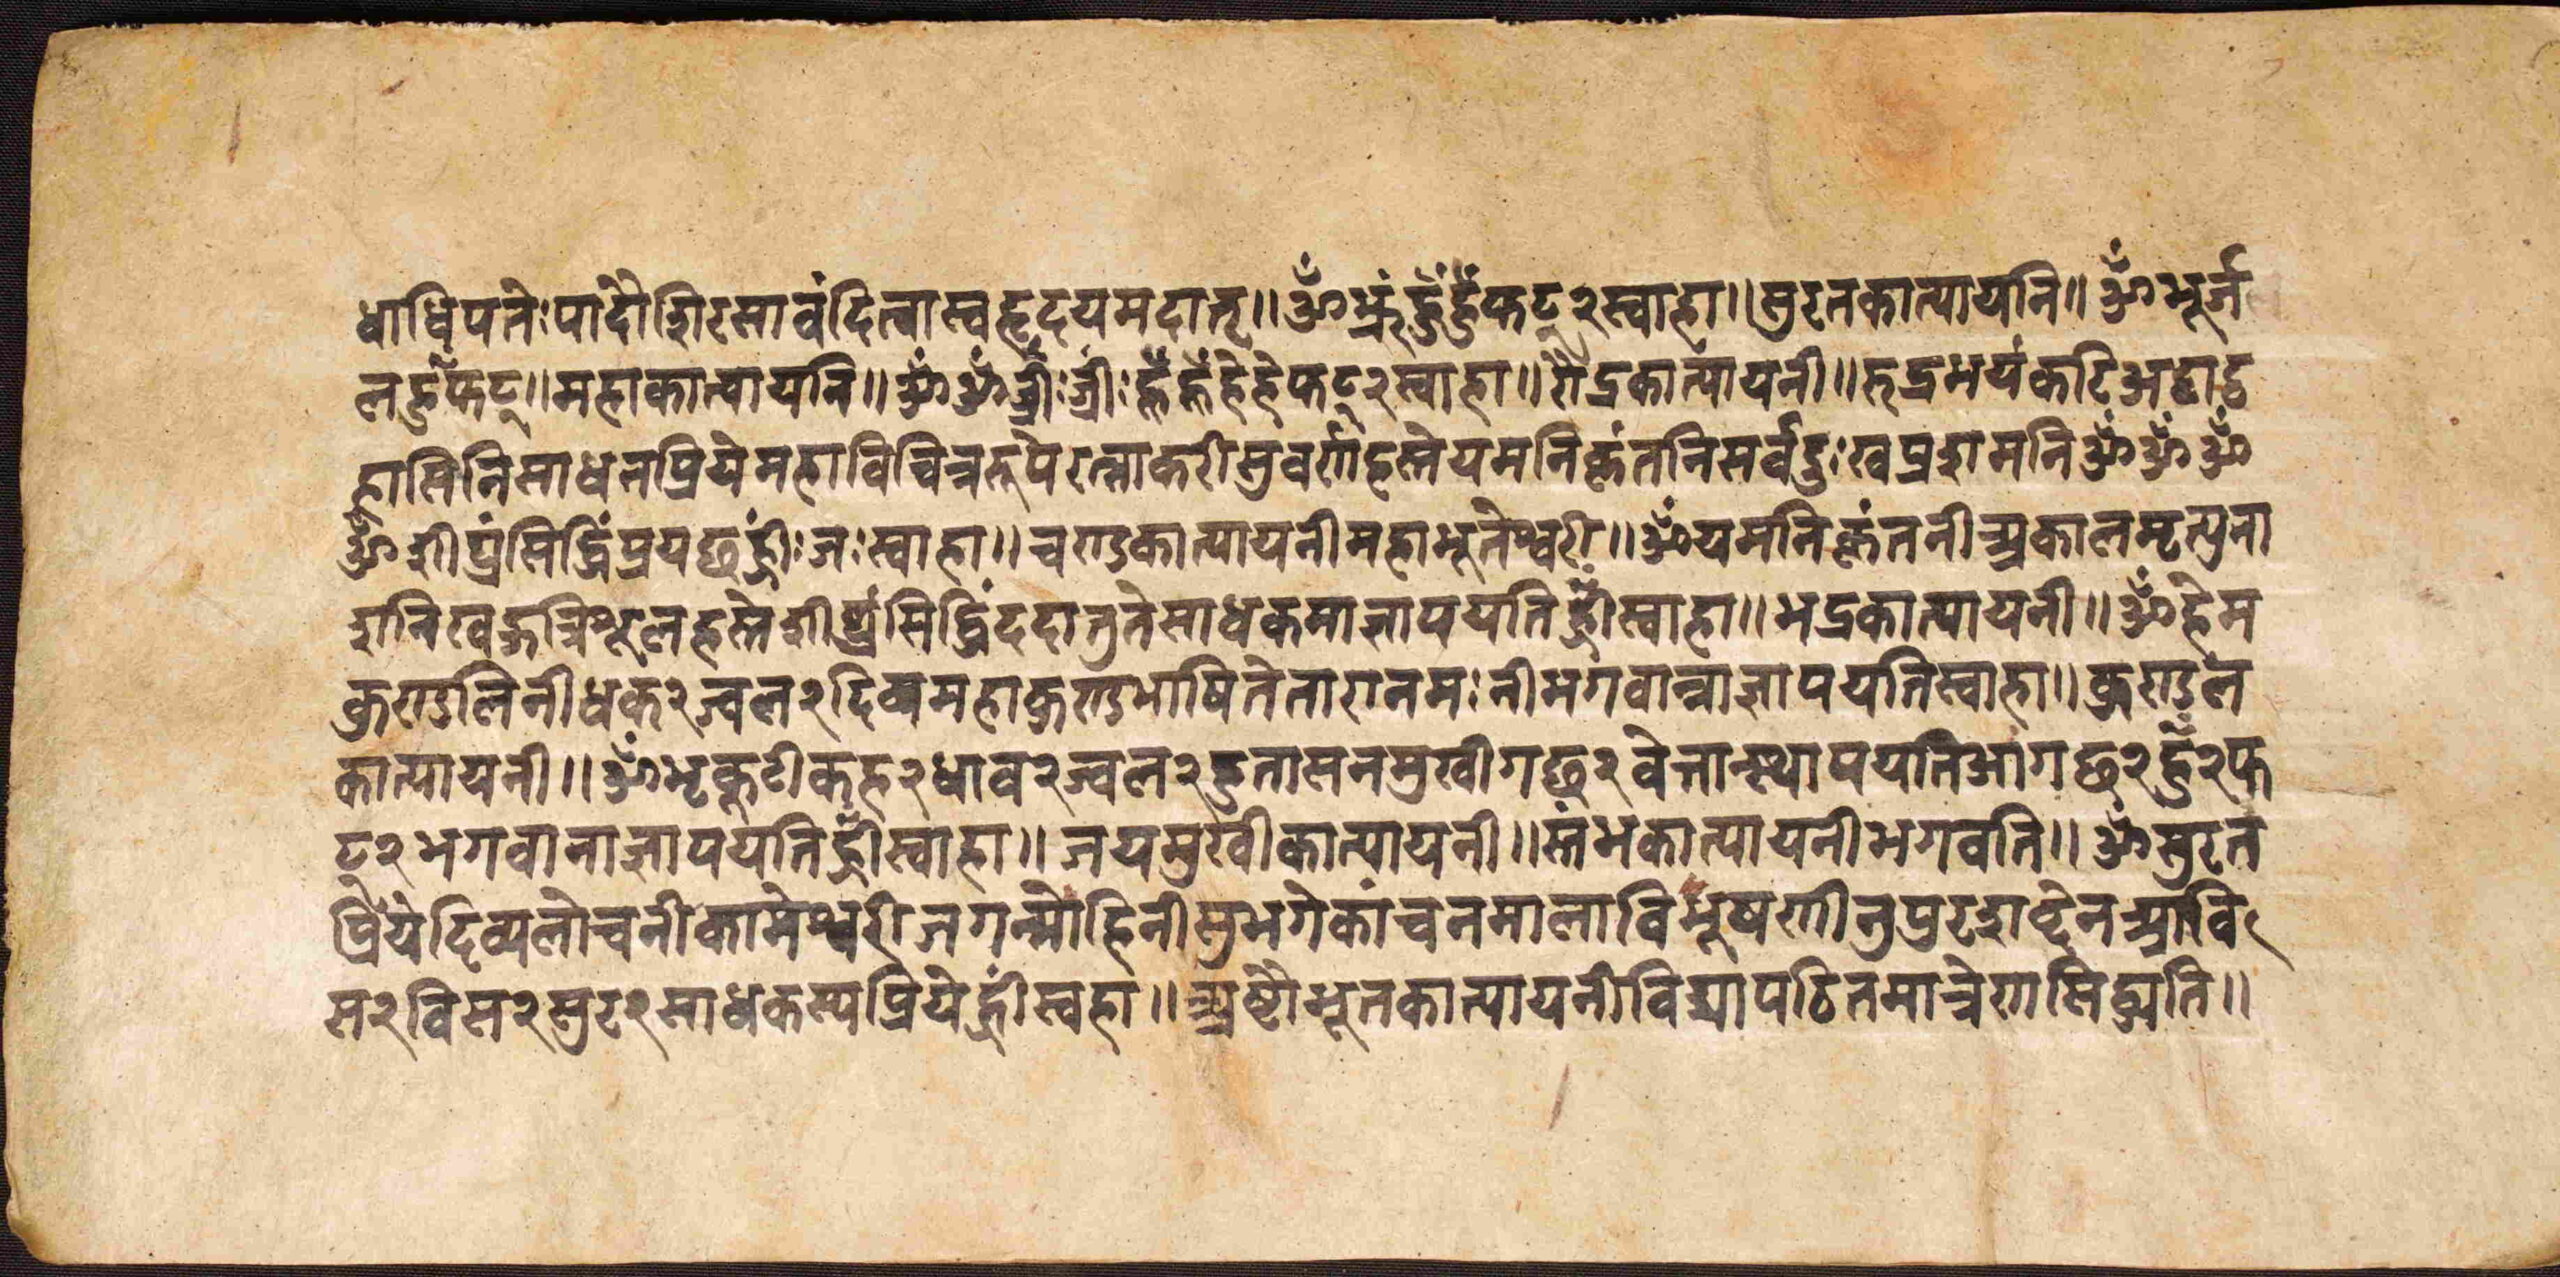 धाधिपतेः पादौ शिरसा वंदित्वा स्वहृदयमदात् ॥ ॐ हुं हुं फट् २ स्वाहा ॥ सुरतकात्यायनि ॥ ॐ भूर्ज
ल हुँ फट् ॥ महाकात्यायनि ॥ ॐ ॐ ज्रीः ज्रीः हे हे फट् २ स्वाहा ॥ रौद्रकात्यायनी ॥ रुद्रभयंकरि अट्टाट्ट
हासिनि साधनप्रिये महाविचित्ररूपे रत्नाकरी सुवर्णहस्ते यमनिकृंतनि सर्वदुःखप्रशमनि ॐ ॐ ॐ
ॐ शीघ्रं सिद्धिं प्रयछ ह्रीः जः स्वाहा ॥ चण्डकात्यायनी महाभूतेश्वरी ॥ ॐ यमनिकृंतनी अकालमृत्युना
शनि खड्गत्रिशूलहस्ते शीघ्रं सिद्धिं ददातु ते साधकमाज्ञापयति ह्रीं स्वाहा ॥ भद्रकात्यायनी ॥ ॐ हेम
कुण्डलिनी धक २ ज्वल २ दिव्यमहाकुण्डभाषिते तारा नमः नी भगवान्नाज्ञापयति स्वाहा ॥ कुण्डल
कात्यायनी ॥ ॐ भृकूटी कह २ धाव २ ज्वल २ हुतासनमुखी गछ २ वेतान्स्थापयति आगछ २ हुँ २ फ
ट् २ भगवानाज्ञापयति ह्रीं स्वाहा ॥ जयमुखीकात्यायनी ॥ स्तंभकात्यायनी भगवति ॥ ॐ सुरत
प्रिये दिव्यलोचनी कामेश्वरी जगन्मोहिनी सुभगे कांचनमालाविभूषणी नुपुरशब्देन आवि
स २ विस २ सुर २ साधकस्य प्रिये ह्रीं स्वहा ॥ अष्टौ भूतकात्यायनी विद्या पठितमात्रेण सिद्ध्यति ॥